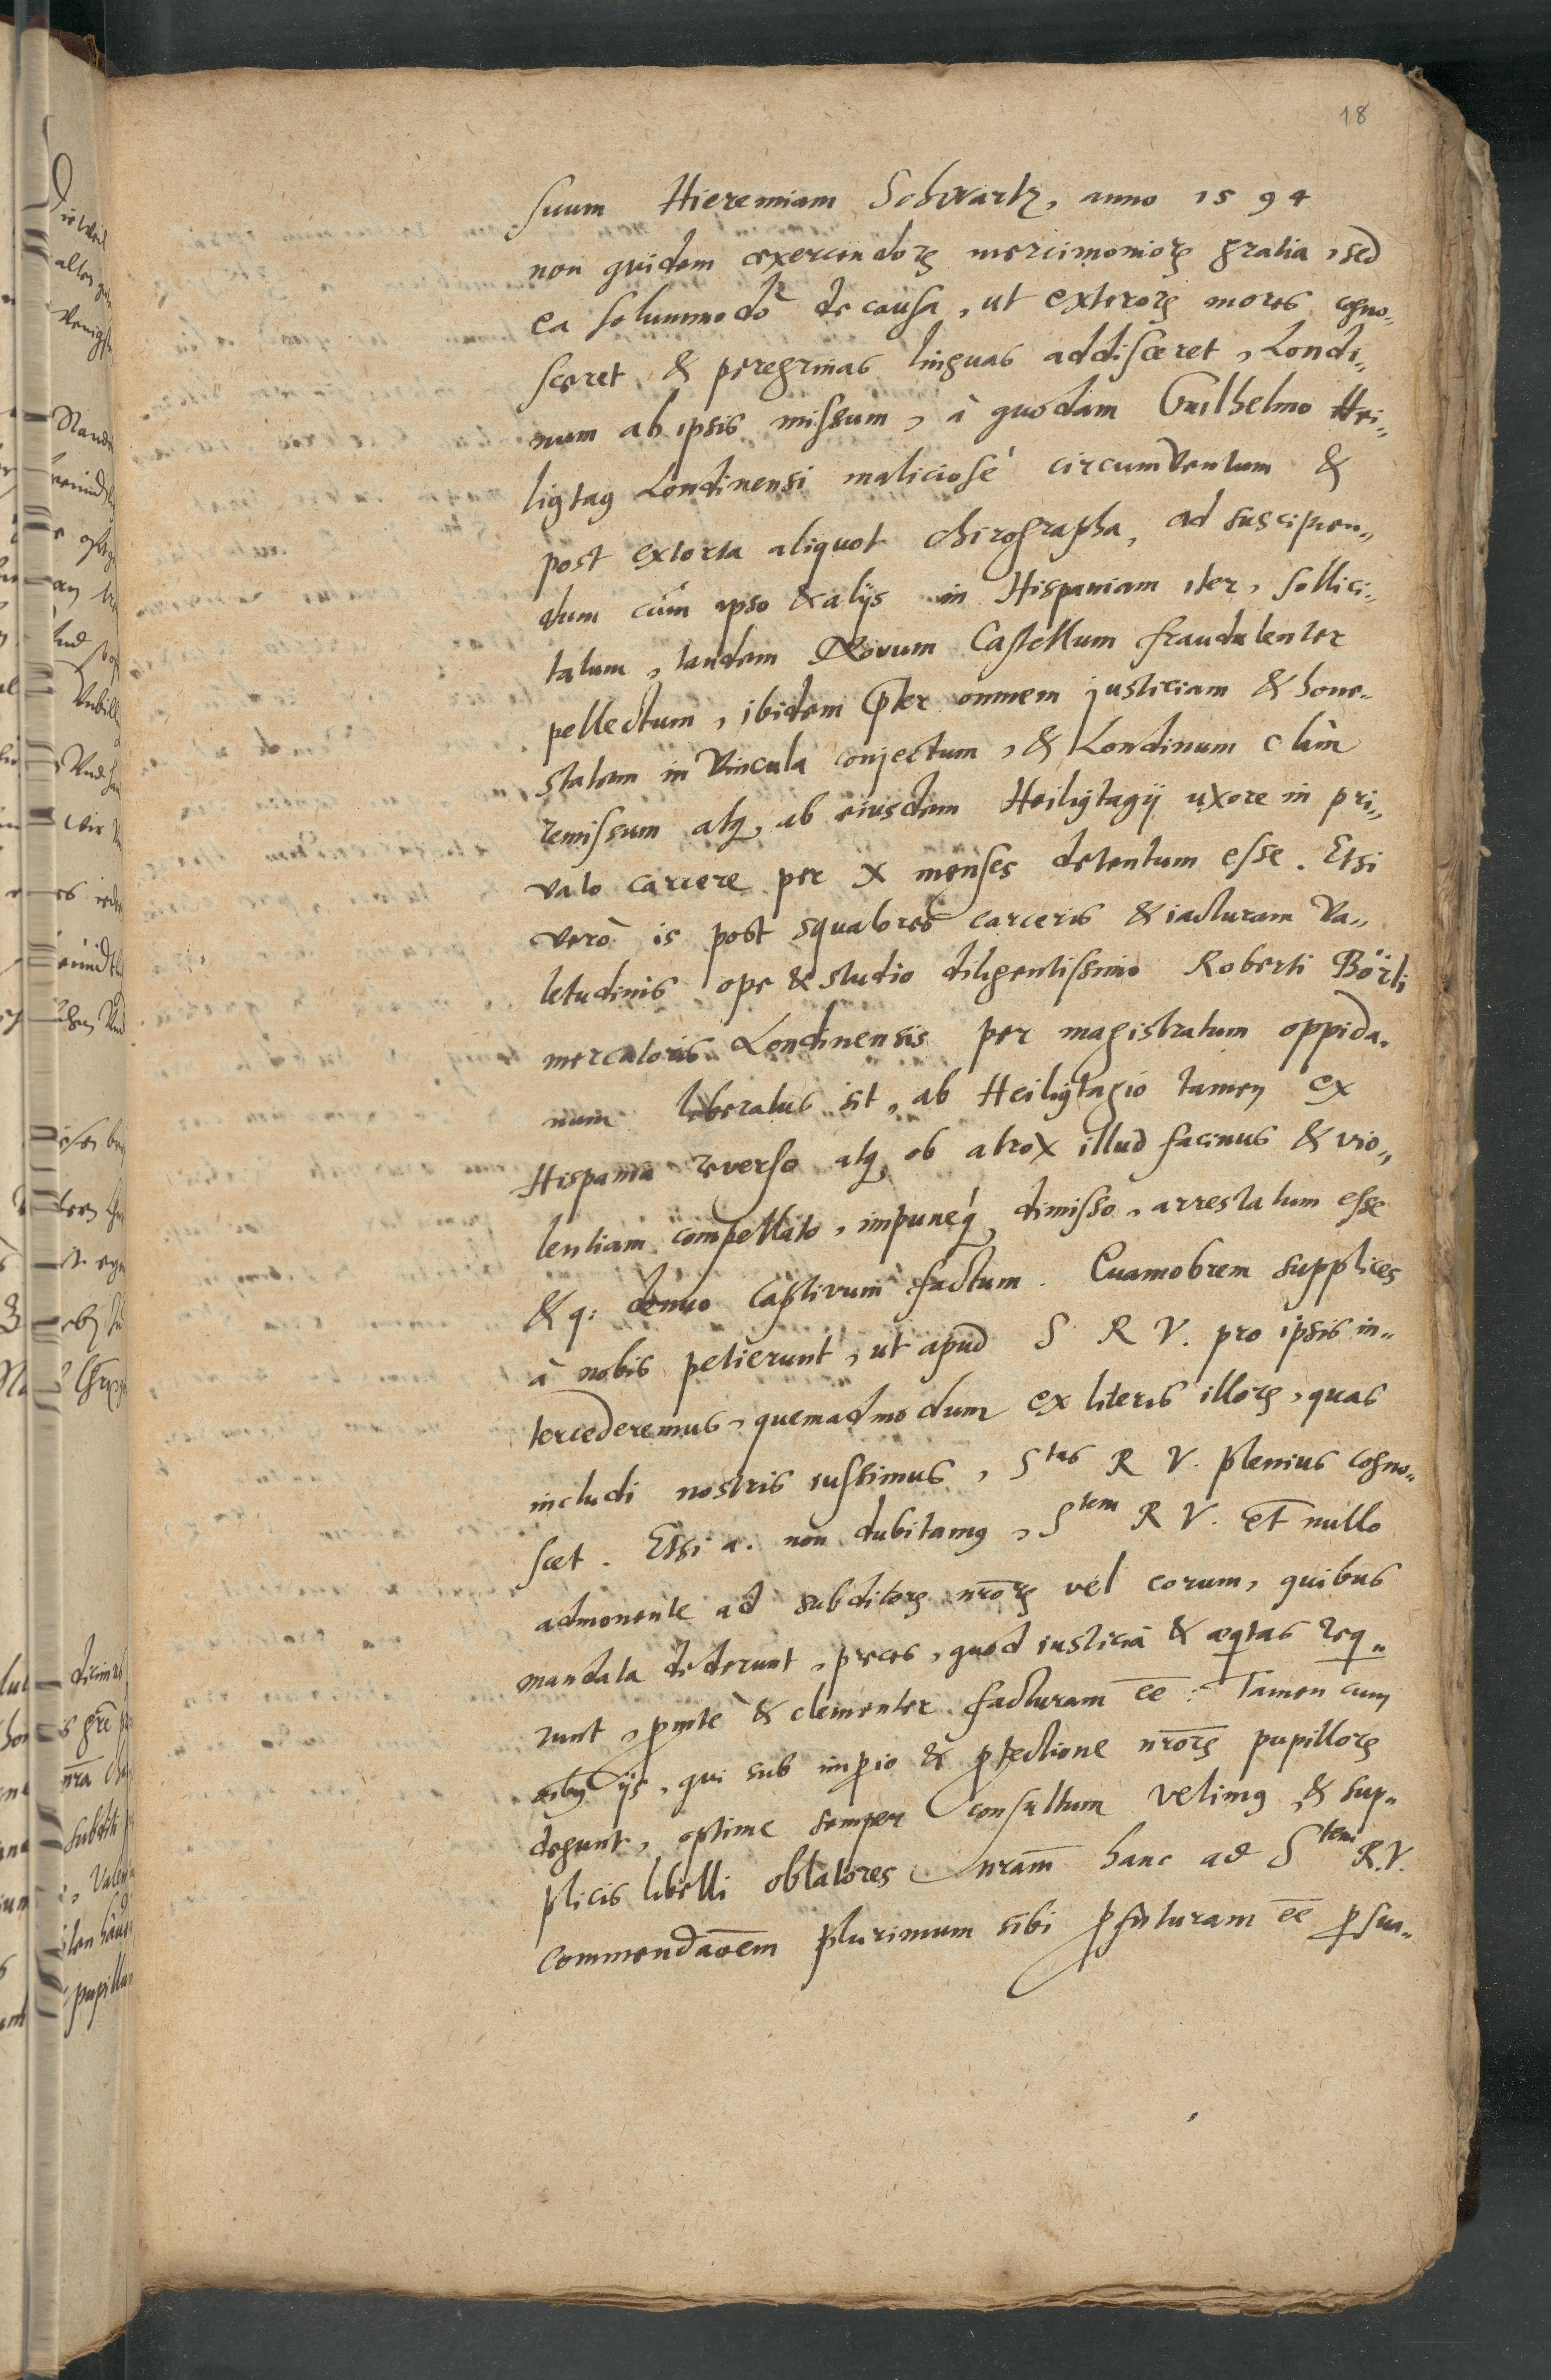 18
suum Hieremiam Schwartz, anno 1594
non quidem exercendorꝝ mercimoniorꝝ gratia, sed
ea solummodò de causa, ut exterorꝝ mores cogno„
sceret & peregrinas linguas addisceret, Londi„
num ab ipsis missum, à quodam Guilhelmo Hei„
ligtag Londinensi maliciosè circumventum &
post extorta aliquot chirographa, ad suscipien„
dum cùm ipso & alijs in Hispaniam iter, sollici„
tatum, tandem Novum Castellum fraudulenter
pellectum, ibidem p̄ter omnem justiciam & hone„
statem in vincula conjectum, & Londinum clàm
remissum atq́, ab eiusdem Heiligtagij uxore in pri„
vato carcere per X menses detentum esse. Etsi
verò is post squalores carceris & iacturam va„
letudinis ope & studio diligentissimo Roberti Börli
mercatoris Londinensis per magistratum oppida„
num liberatus sit, ab Heiligtagio tamen ex
Hispania reverso atq́, ob atrox illud facinus & vio„
lentiam compellato, impuneq́, dimisso, arrestatum esse
& q: denuo captivum factum. Quamobrem supplices
à nobis petierunt, ut apud S R V. pro ipsis in„
tercederemus, quemadmodum ex literis illorꝝ, quas
includi nostris iussimus, Stas R V. plenius cogno„
scet. Etsi a. non dubitamꝰ, Stem R V. et nullo
admonente ad subditorꝝ nr̄orꝝ vel eorum, quibus
mandata dederunt, preces, quod iusticia & æqtas req„
runt, ꝓmtè & clementer facturam ēe: Tamen cum
oībꝰ ijs, qui sub imꝑio & ꝓtectione nr̄orꝝ pupillorꝝ
degunt, optime semper consultum velimꝰ & sup„
plicis libelli oblatores nr̄am hanc ad Stem R.V.
commendaōem plurimum sibi ꝓfuturam ēe ꝑsua„